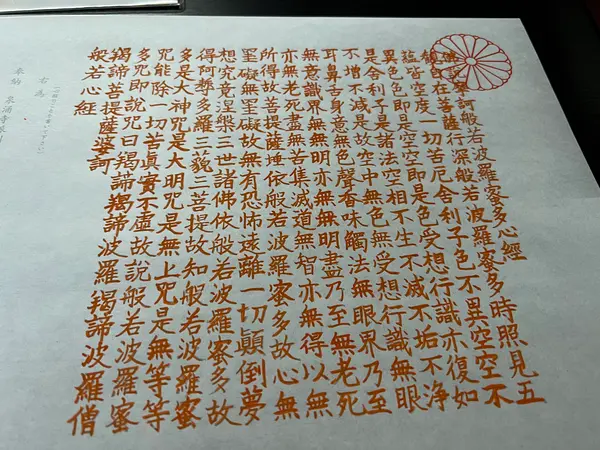 佛説摩訶般若波羅蜜多心經
觀自在菩薩行深般若波羅蜜多時照見五
蘊皆空度一切苦厄舍利子色不異空空不
異色色即是空空即是色受想行識亦復如
是舍利子是諸法空相不生不滅不垢不淨
不增不減是故空中無色無受想行識無眼
耳鼻舌身意無色聲香味觸法無眼界乃至
無意識界無無明亦無無明盡乃至無老死
亦無老死盡無苦集滅道無智亦無得以無
所得故菩提薩埵依般若波羅蜜多故心無
罣礙無罣礙故無有恐怖遠離一切顛倒夢
想究竟涅槃三世諸佛依般若波羅蜜多故
得阿耨多羅三藐三菩提故知般若波羅蜜
多是大神呪是大明呪是無上呪是無等等
呪能除一切苦眞實不虚故説般若波羅蜜
多呪即説呪曰羯諦羯諦波羅羯諦波羅僧
羯諦菩提薩婆訶
般若心經
右為
奉納 泉涌寺